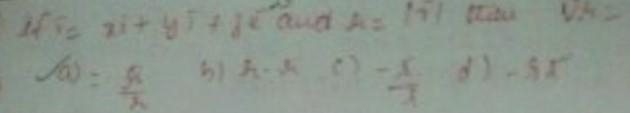 If r̄ = xi + yj + zk and r = |r̄| then ∇r =
a) = r̄/r b) r · r c) - r̄/